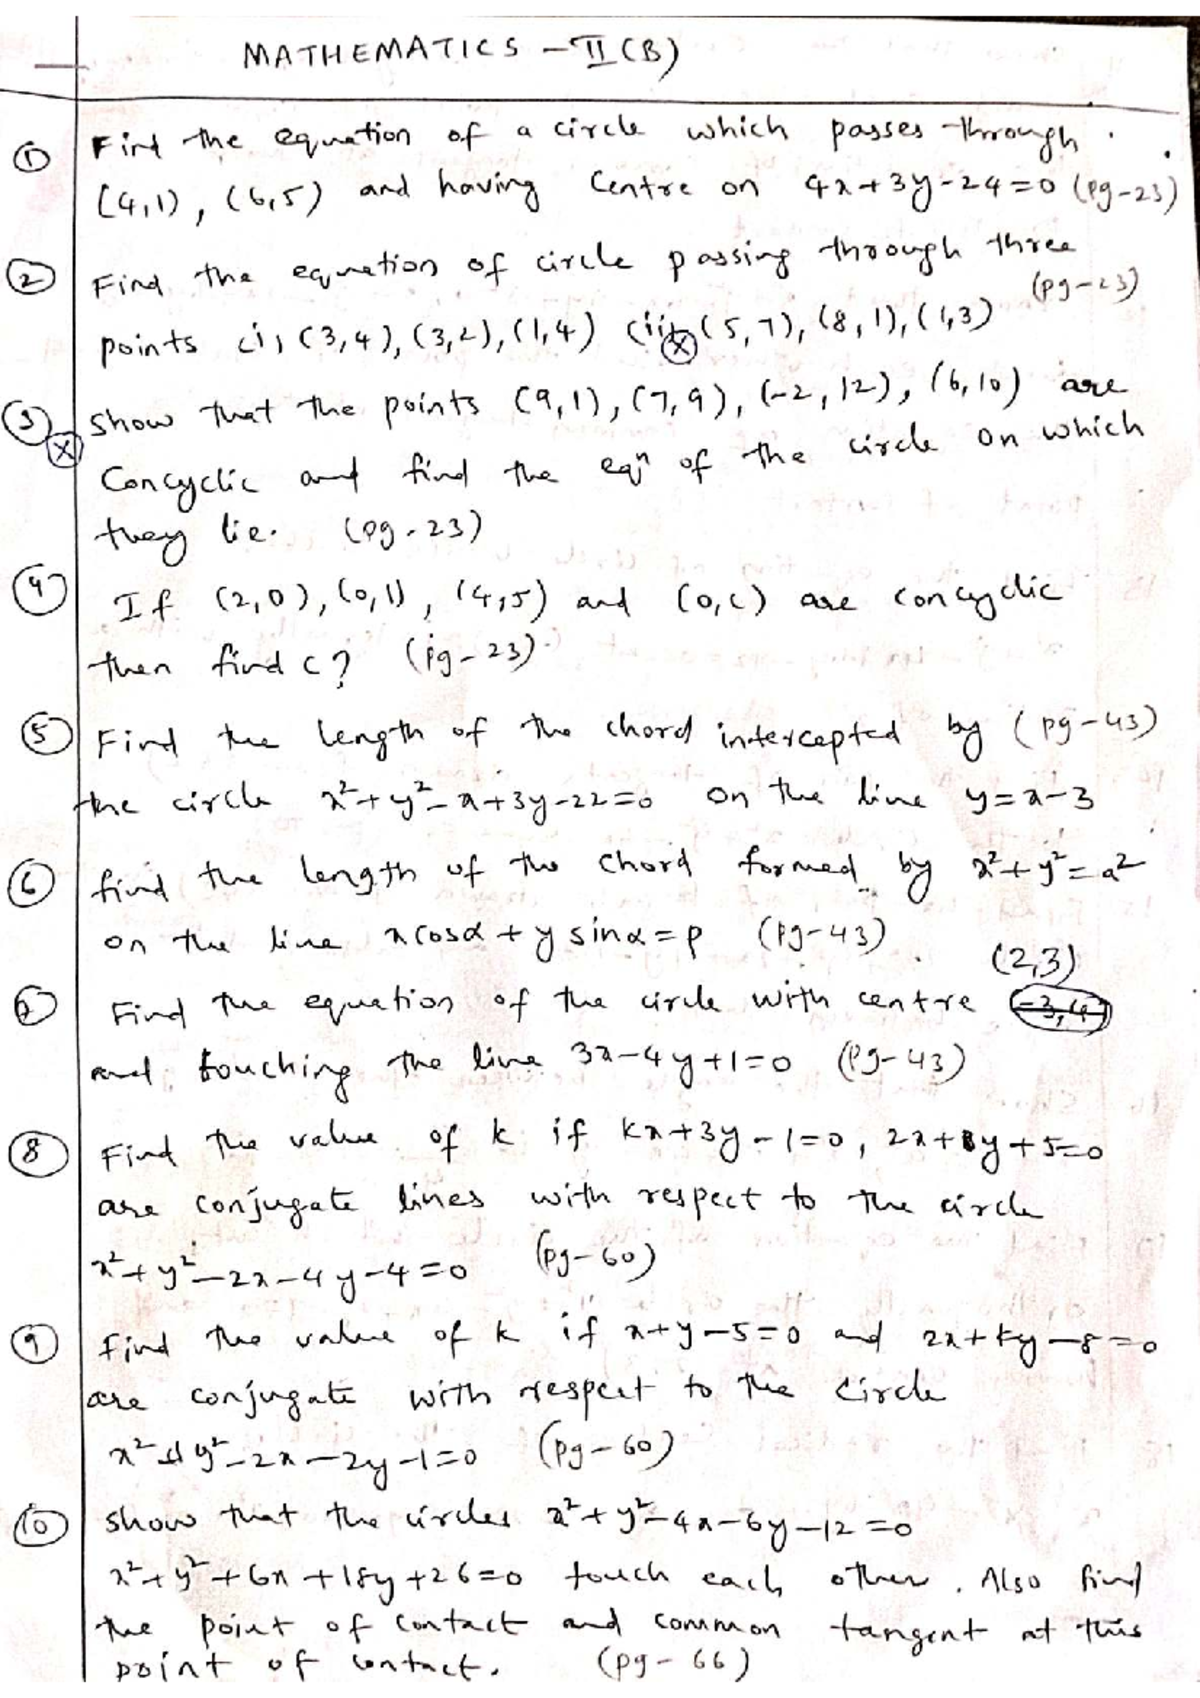 MATHEMATICS - II (B)
① Find the equation of a circle which passes through
(4,1), (6,5) and having Centre on 4x+3y-24=0 (pg-23)
② Find the equation of circle passing through three
(pg-23)
points (i) (3,4), (3,2), (1,4) (ii) (5,7), (8,1), (1,3)
③ Show that the points (9,1), (7,9), (-2,12), (6,10) are
Concyclic and find the eqn of the circle on which
they lie. (pg-23)
④ If (2,0), (0,1), (4,5) and (0,c) are concyclic
then find c? (pg-23)
⑤ Find the length of the chord intercepted by (pg-43)
the circle x²+y²-x+3y-22=0 on the line y=x-3
⑥ find the length of the chord formed by x²+y²=a²
on the line xcosα+ysinα=p (pg-43)
(2,3)
⑦ Find the equation of the circle with centre
and touching the line 3x-4y+1=0 (pg-43)
⑧ Find the value of k if kx+3y-1=0, 2x+y+5=0
are conjugate lines with respect to the circle
x²+y²-2x-4y-4=0 (pg-60)
⑨ find the value of k if x+y-5=0 and 2x+ky-8=0
are conjugate with respect to the circle
x²+y²-2x-2y-1=0 (pg-60)
⑩ show that the circles x²+y²-4x-6y-12=0
x²+y²+6x+18y+26=0 touch each other. Also find
the point of contact and common tangent at this
point of contact. (pg-66)